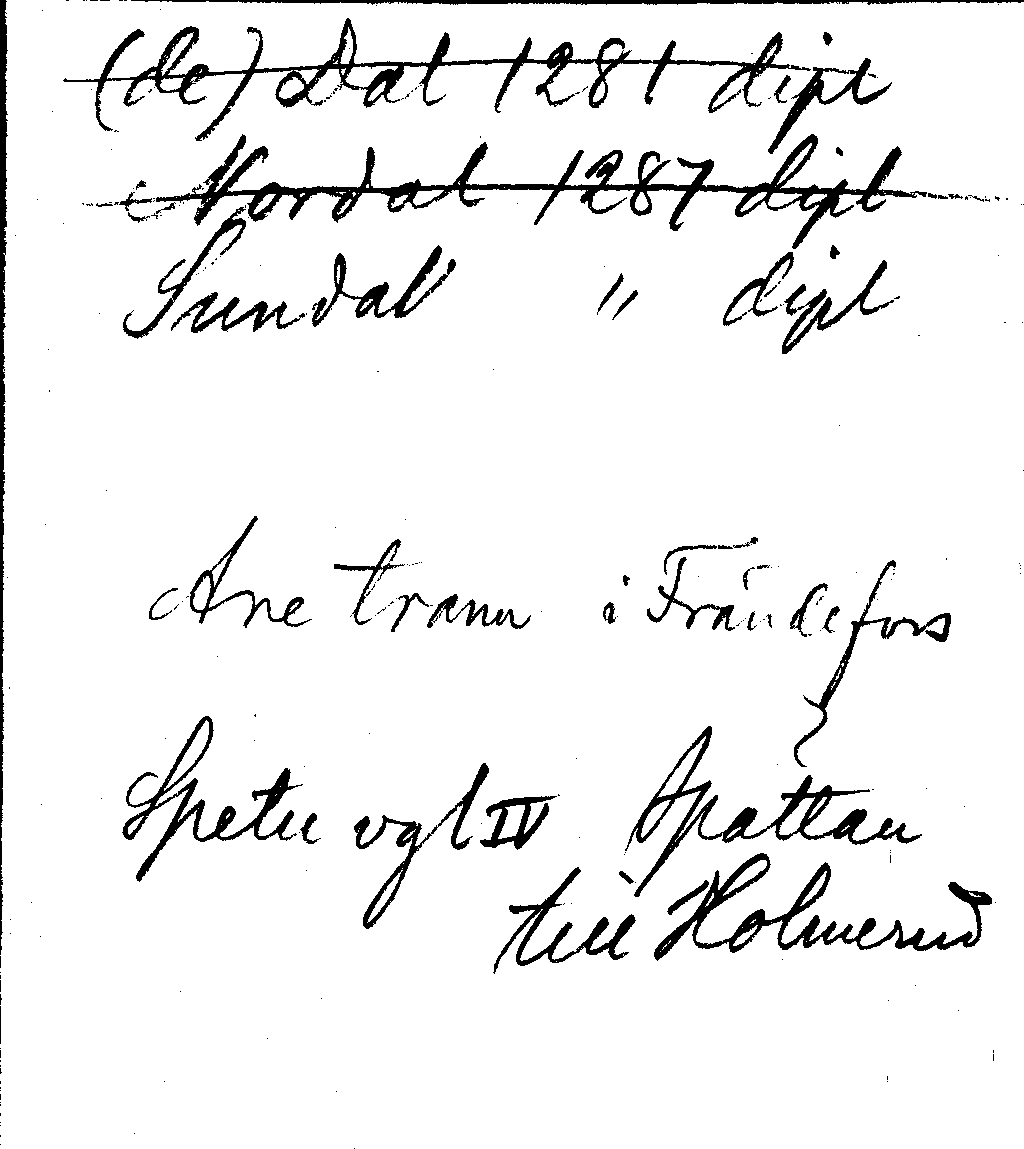 (de) Dal 1281 dipl
Nordal 1287 dipl
Sundal " dipl
Ane tranu i Frändefors
Spetu vgl IV Spattan
till Holmerud